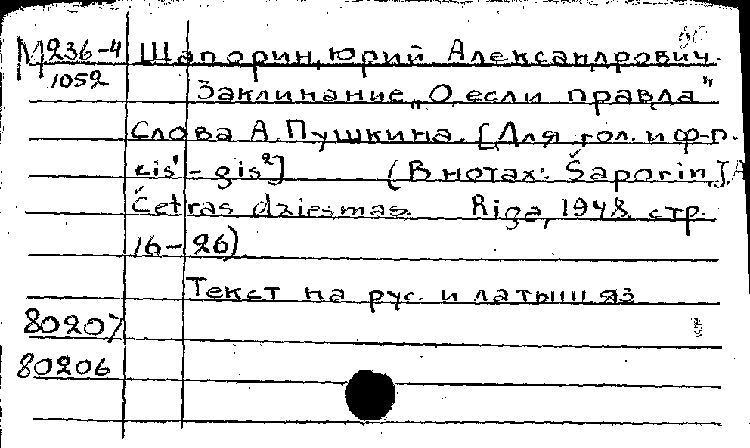 М 236-4 Шапорин, Юрий Александрович.
1052
Заклинание „О, если правда"
Слова А. Пушкина. [Для гол. и ф-п.
cis¹ - gis²] (В нотах: Šaporin, J. A
Četras dziesmas. Riga, 1948 стр.
16-26)
Текст на рус. и латыш. яз
80207
80206